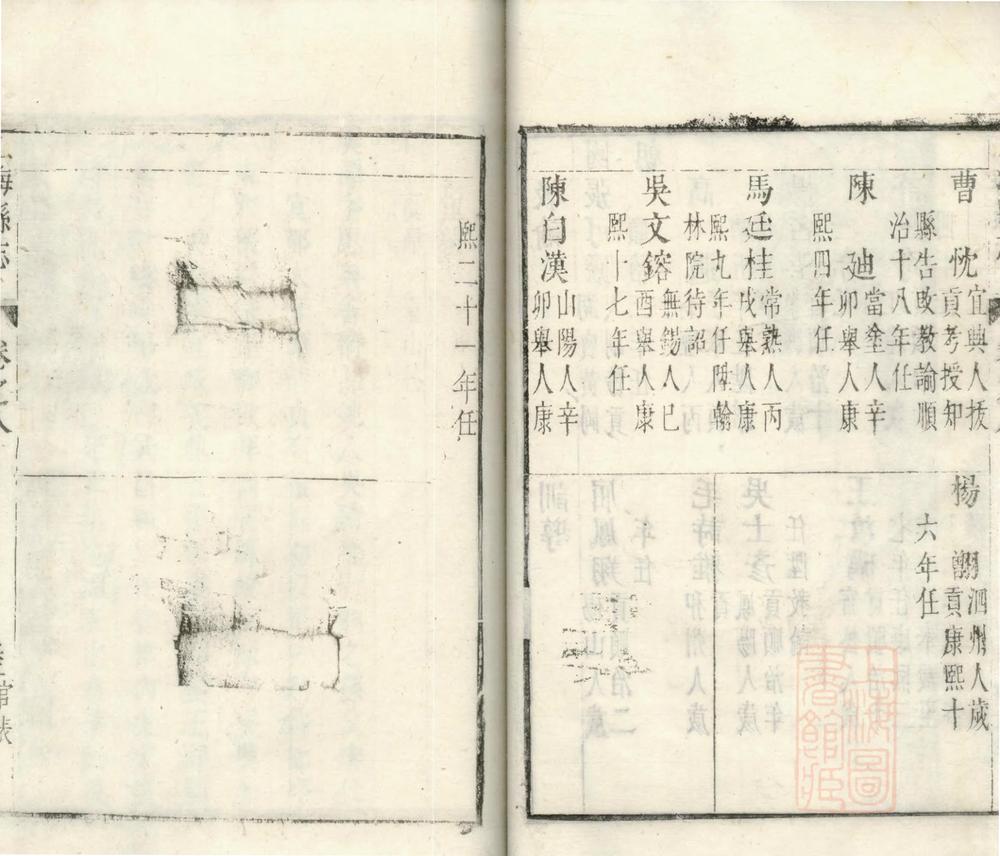 曹 忱 宜興人拔
貢考授知
縣告改教諭順
治十八年任
陳 廸 當塗人辛
卯舉人康
熙四年任
馬廷桂 常熟人丙
戌舉人康
熙九年任陞翰
林院待詔
吳文鎔 無錫人己
酉舉人康
熙十七年任
陳白漢 山陽人辛
卯舉人康
楊 泗州人歲
貢康熙十
六年任
上海圖
書館藏
熙二十一年任
海縣志
卷之八
官表